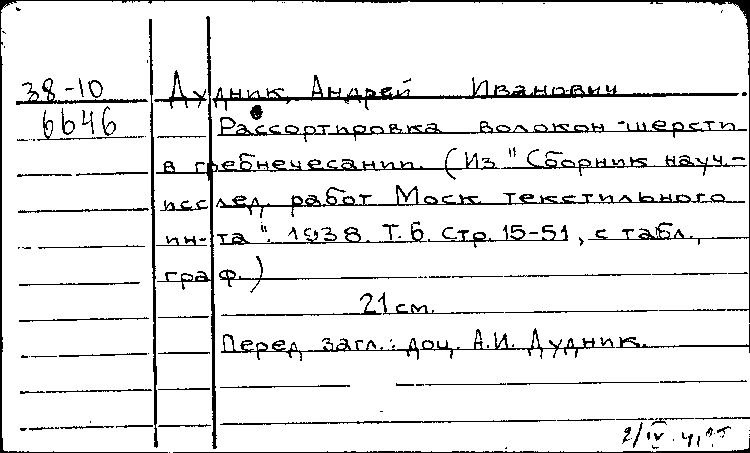 38-10 Дудник, Андрей Иванович
6646 Рассортировка волокон шерсти
в гребнечесании. (Из "Сборник науч.-
исслед. работ Моск. текстильного
ин-та". 1938. Т. 6. Стр. 15-51, с табл.,
граф.)
21 см.
Перед загл.: доц. А.И. Дудник.
2/IV